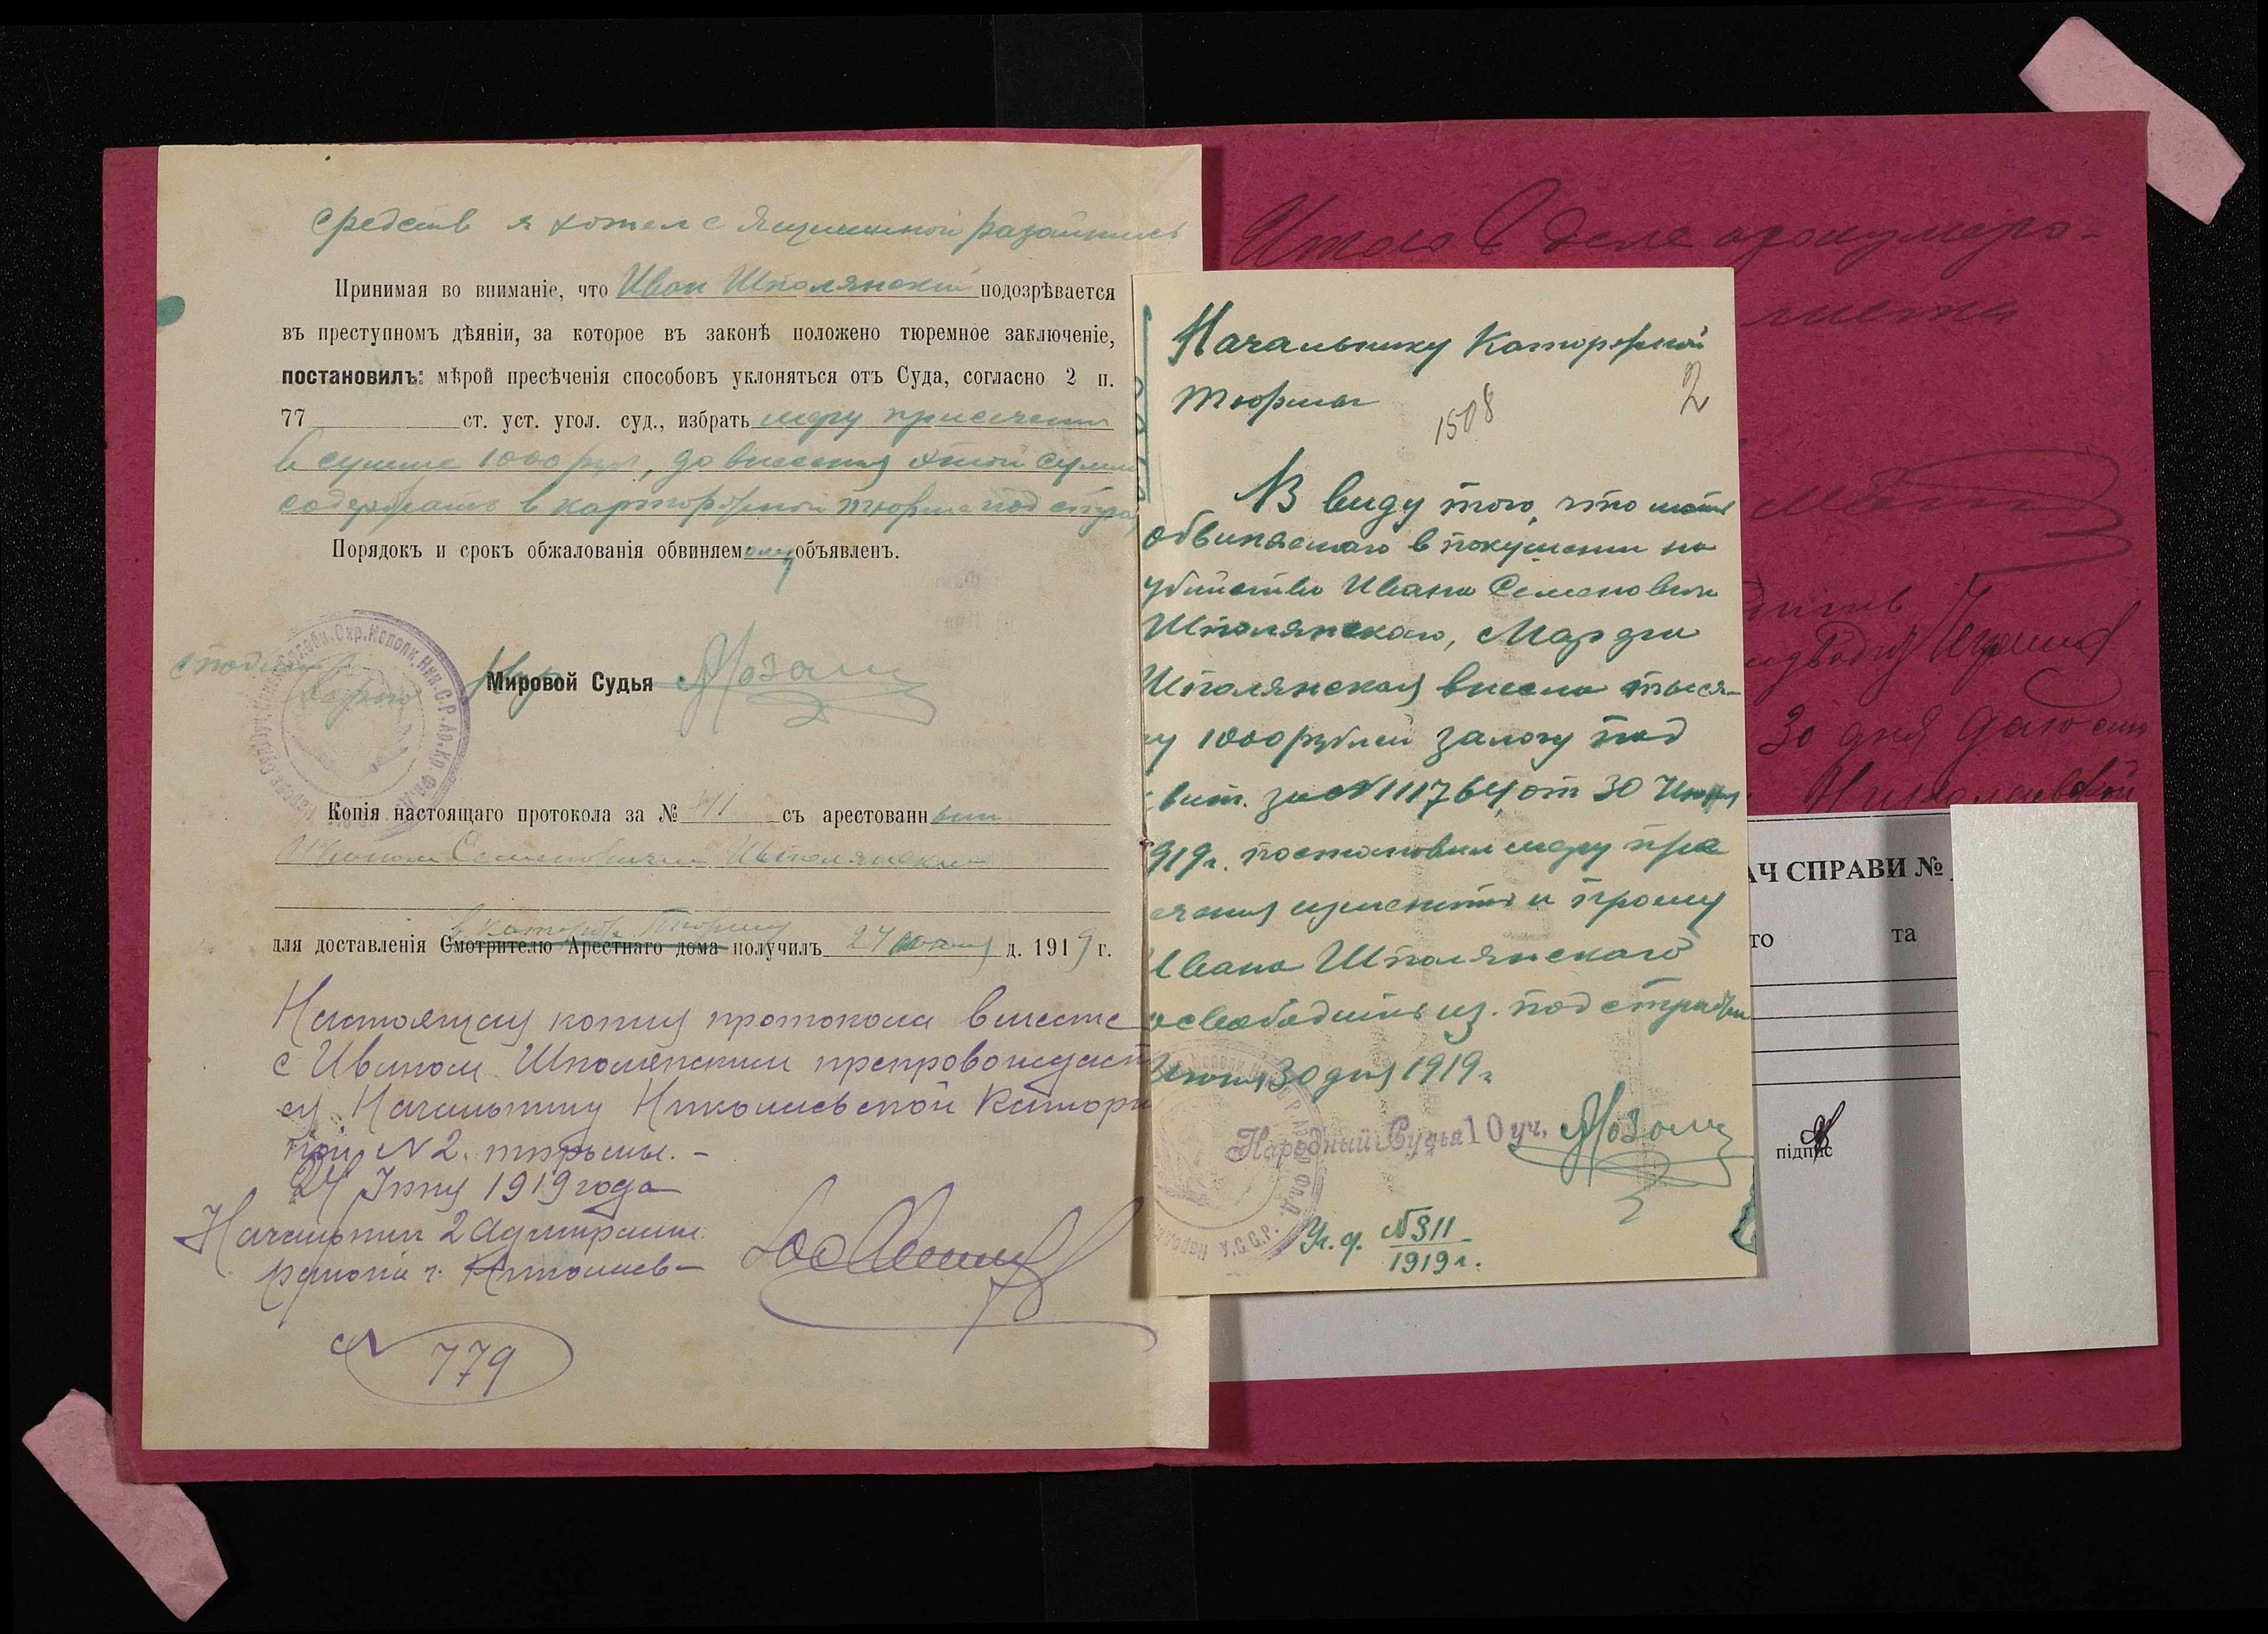 средств я хотел с разойтись
Принимая во вниманіе, что Иван Шполянский подозрѣвается
въ преступномъ дѣяніи, за которое въ законѣ положено тюремное заключеніе,
постановилъ: мѣрой пресѣченія способовъ уклоняться отъ Суда, согласно 2 п.
77 ст. уст. угол. суд., избрать меру пресечения
в сумме 1000 руб, до внесения этой суммы
содержать в каторжной тюрьме под стра
Порядокъ и срокъ обжалованія обвиняемому объявленъ.
с подлин
верно
Нар Мировой Судья
Копія настоящаго протокола за № съ арестованным
Иваном Семеновичем Шполянски
в каторж. тюрьму
для доставленія Смотрителю Арестнаго дома получилъ 24 июня д. 1919 г.
Настоящую копию протокола вместе
с Иваном Шполянским препровождает
ся Начальнику Николаевской Каторж
ной N 2. тюрьмы. -
24 Июня 1919 года
Начальник 2 Адмиралт.
района г. Николаев-
N 779
Начальнику Каторжной
тюрьмы
1508
2
В виду того, что мать
обвиняемаго в покушении на
убийство Ивана Семеновича
Шполянскаго,
Шполянская внесла тыся-
чу 1000 рублей залогу под
квит. за № 111764 от 30 Июня
1919 г. постановил меру пре
сечения изменить и прошу
Ивана Шполянскаго
освободить из. под стражи
Июня 30 дня 1919 г.
Народный Судья 10 уч.
Уг. д. № 311
1919 г.
Итого в деле пронумеро-
листа
30 дня дано сие
Николаевской
АЧ СПРАВИ №
то та
підпис